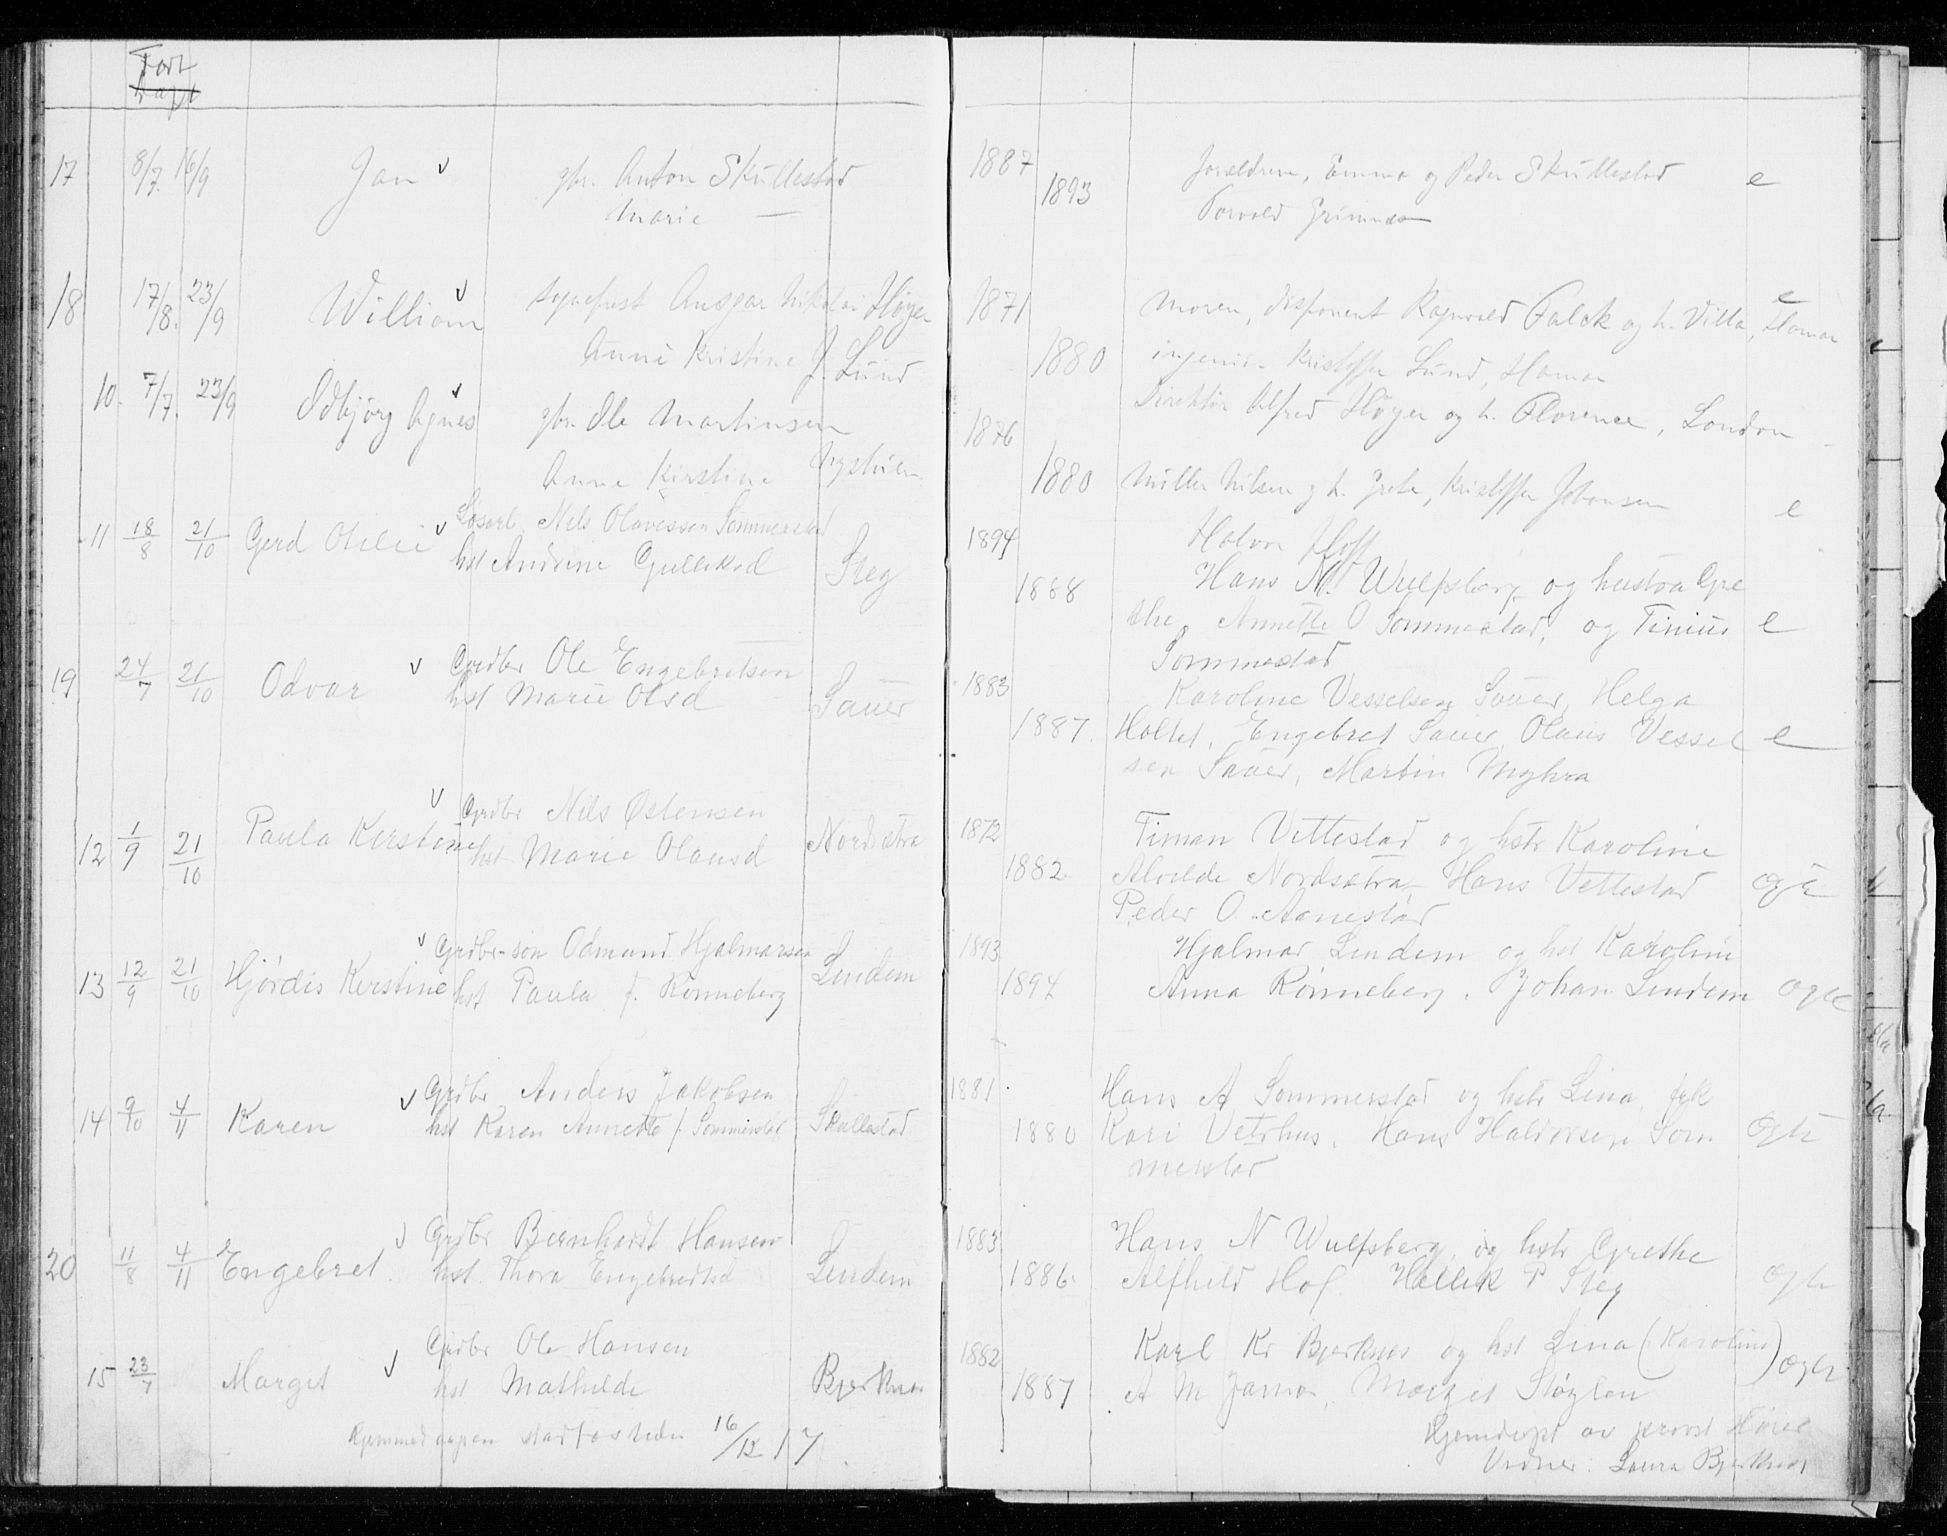 Født
Døpt
17 8/7. 16/9 Jan v gbr. Anton Skullestad 1887 Forældrene, Emma og Peder Skullestad e
Marie — 1893 Torvald Grimnes
18 17/8. 23/9 William v sogneprest Ansgar Nikolai Høyer 1871 Moren, disponent Ragnvald Falck og h. Villa, Hamar e
Anne Kristine f. Lund 1880 ingeniør Kristoffer Lund, Hamar
Direktør Alfred Høyer og h. Florence, London
10. 7/7. 23/9 Odbjørg Agnes v gbr. Ole Martinsen 1876
Anne Kirstine Nystuen 1880 Müller Nilsen og h. Grete, Kristoffer Johansen e
Halvor Hoff
11 18/8 21/10 Gerd Otilie v Løsarb. Nils Olavessen Sommerstad 1894 Hans N. Wulfsberg og hustru Gre
hst Andrine Gulliksd Steg 1888 the, Annette O Sommestad, og Tinius e
Sommestad
19 24/7 21/10 Odvar v Grdbr Ole Engebretsen 1883 Karoline Vesselsen Sauer, Helga
hst Marie Olsd Sauer 1887. Holtet, Engebret Sauer, Olaus Vessel e
sen Sauer, Martin Myhra
12 1/9 21/10 Paula Kerstine v Grdbr Nils Østensen 1872 Timan Vettestad og hstr Karoline
hst Marie Olausd Nordsætra 1882. Alvilde Nordsætra, Hans Vettestad Ogte
Peder O. Aanestad
13 12/9 21/10 Hjördis Kerstine v Grdbr-søn Odmund Hjalmarsen 1893 Hjalmar Lindem og hst Karoline
hst Paula f. Rønneberg Lindem 1894 Anna Rønneberg, Johan Lindem ogte
14 9/10 4/11 Karen v Grdbr Anders Jakobsen 1881 Hans A Sommerstad og hstr Lina, frk
hst Karen Annette f. Sommerstad Skullestad 1880 Kari Vetrhus, Hans Halvorsen Som Ogte
merstad
20 11/8 4/11 Engebret v Grdbr Bernhardt Hansen 1883 Hans N Wulfsberg og hstr Grethe
hst. Thora Engebretsd Lindem 1886. Alfhild Hof Hallik P Steg ogte
15 23/7 Margit v Grdbr Ole Hansen 1882 Karl Kr Bjerknes og hst Lina (Karoline) ogte
hst Mathilde Bjerknes 1887 A M Jamar, Margit Støylen
Hjemmedaapen stadfæstedes 16/12 17. Hjemdøpt av provst Hører
Vidner: Laura Bjerknes